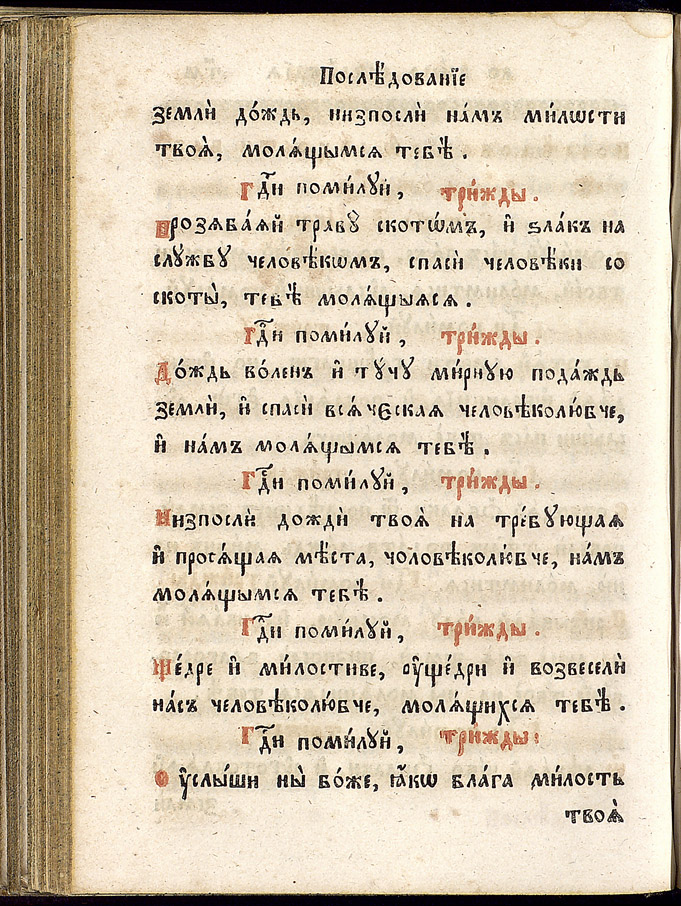 Послѣ́дованїе
землѝ до́ждь, низпослѝ на́мъ ми́лѡсти
твоѧ̀, молѧ́щымсѧ тебѣ̀.
Гдⷭ҇и поми́лꙋй, три́жды.
Прозѧба́ѧй травꙋ̀ скотѡ́мъ, и҆ ѕла́къ на
слꙋ́жбꙋ человѣ́кѡмъ, спасѝ человѣ́ки со
скоты̀, тебѣ̀ молѧ́щыѧсѧ.
Гдⷭ҇и поми́лꙋй, три́жды.
До́ждь во́ленъ и҆ тꙋ́чꙋ ми́рнꙋю пода́ждь
землѝ, и҆ спасѝ всѧ́ческаѧ человѣколю́бче,
и҆ на́мъ молѧ́щымсѧ тебѣ̀.
Гдⷭ҇и поми́лꙋй, три́жды.
Низпослѝ дождѝ твоѧ̀ на тре́бꙋющаѧ
и҆ просѧ́щаѧ мѣ́ста, чоловѣколю́бче, на́мъ
молѧ́щымсѧ тебѣ̀.
Гдⷭ҇и поми́лꙋй, три́жды.
Ще́дре и҆ ми́лостиве, оу҆ще́дри и҆ возвеселѝ
на́съ человѣколю́бче, молѧ́щихсѧ тебѣ̀.
Гдⷭ҇и поми́лꙋй, три́жды:
Оу҆слы́ши ны̀ бо́же, ꙗ҆́кѡ бла́га ми́лость
твоѧ̀